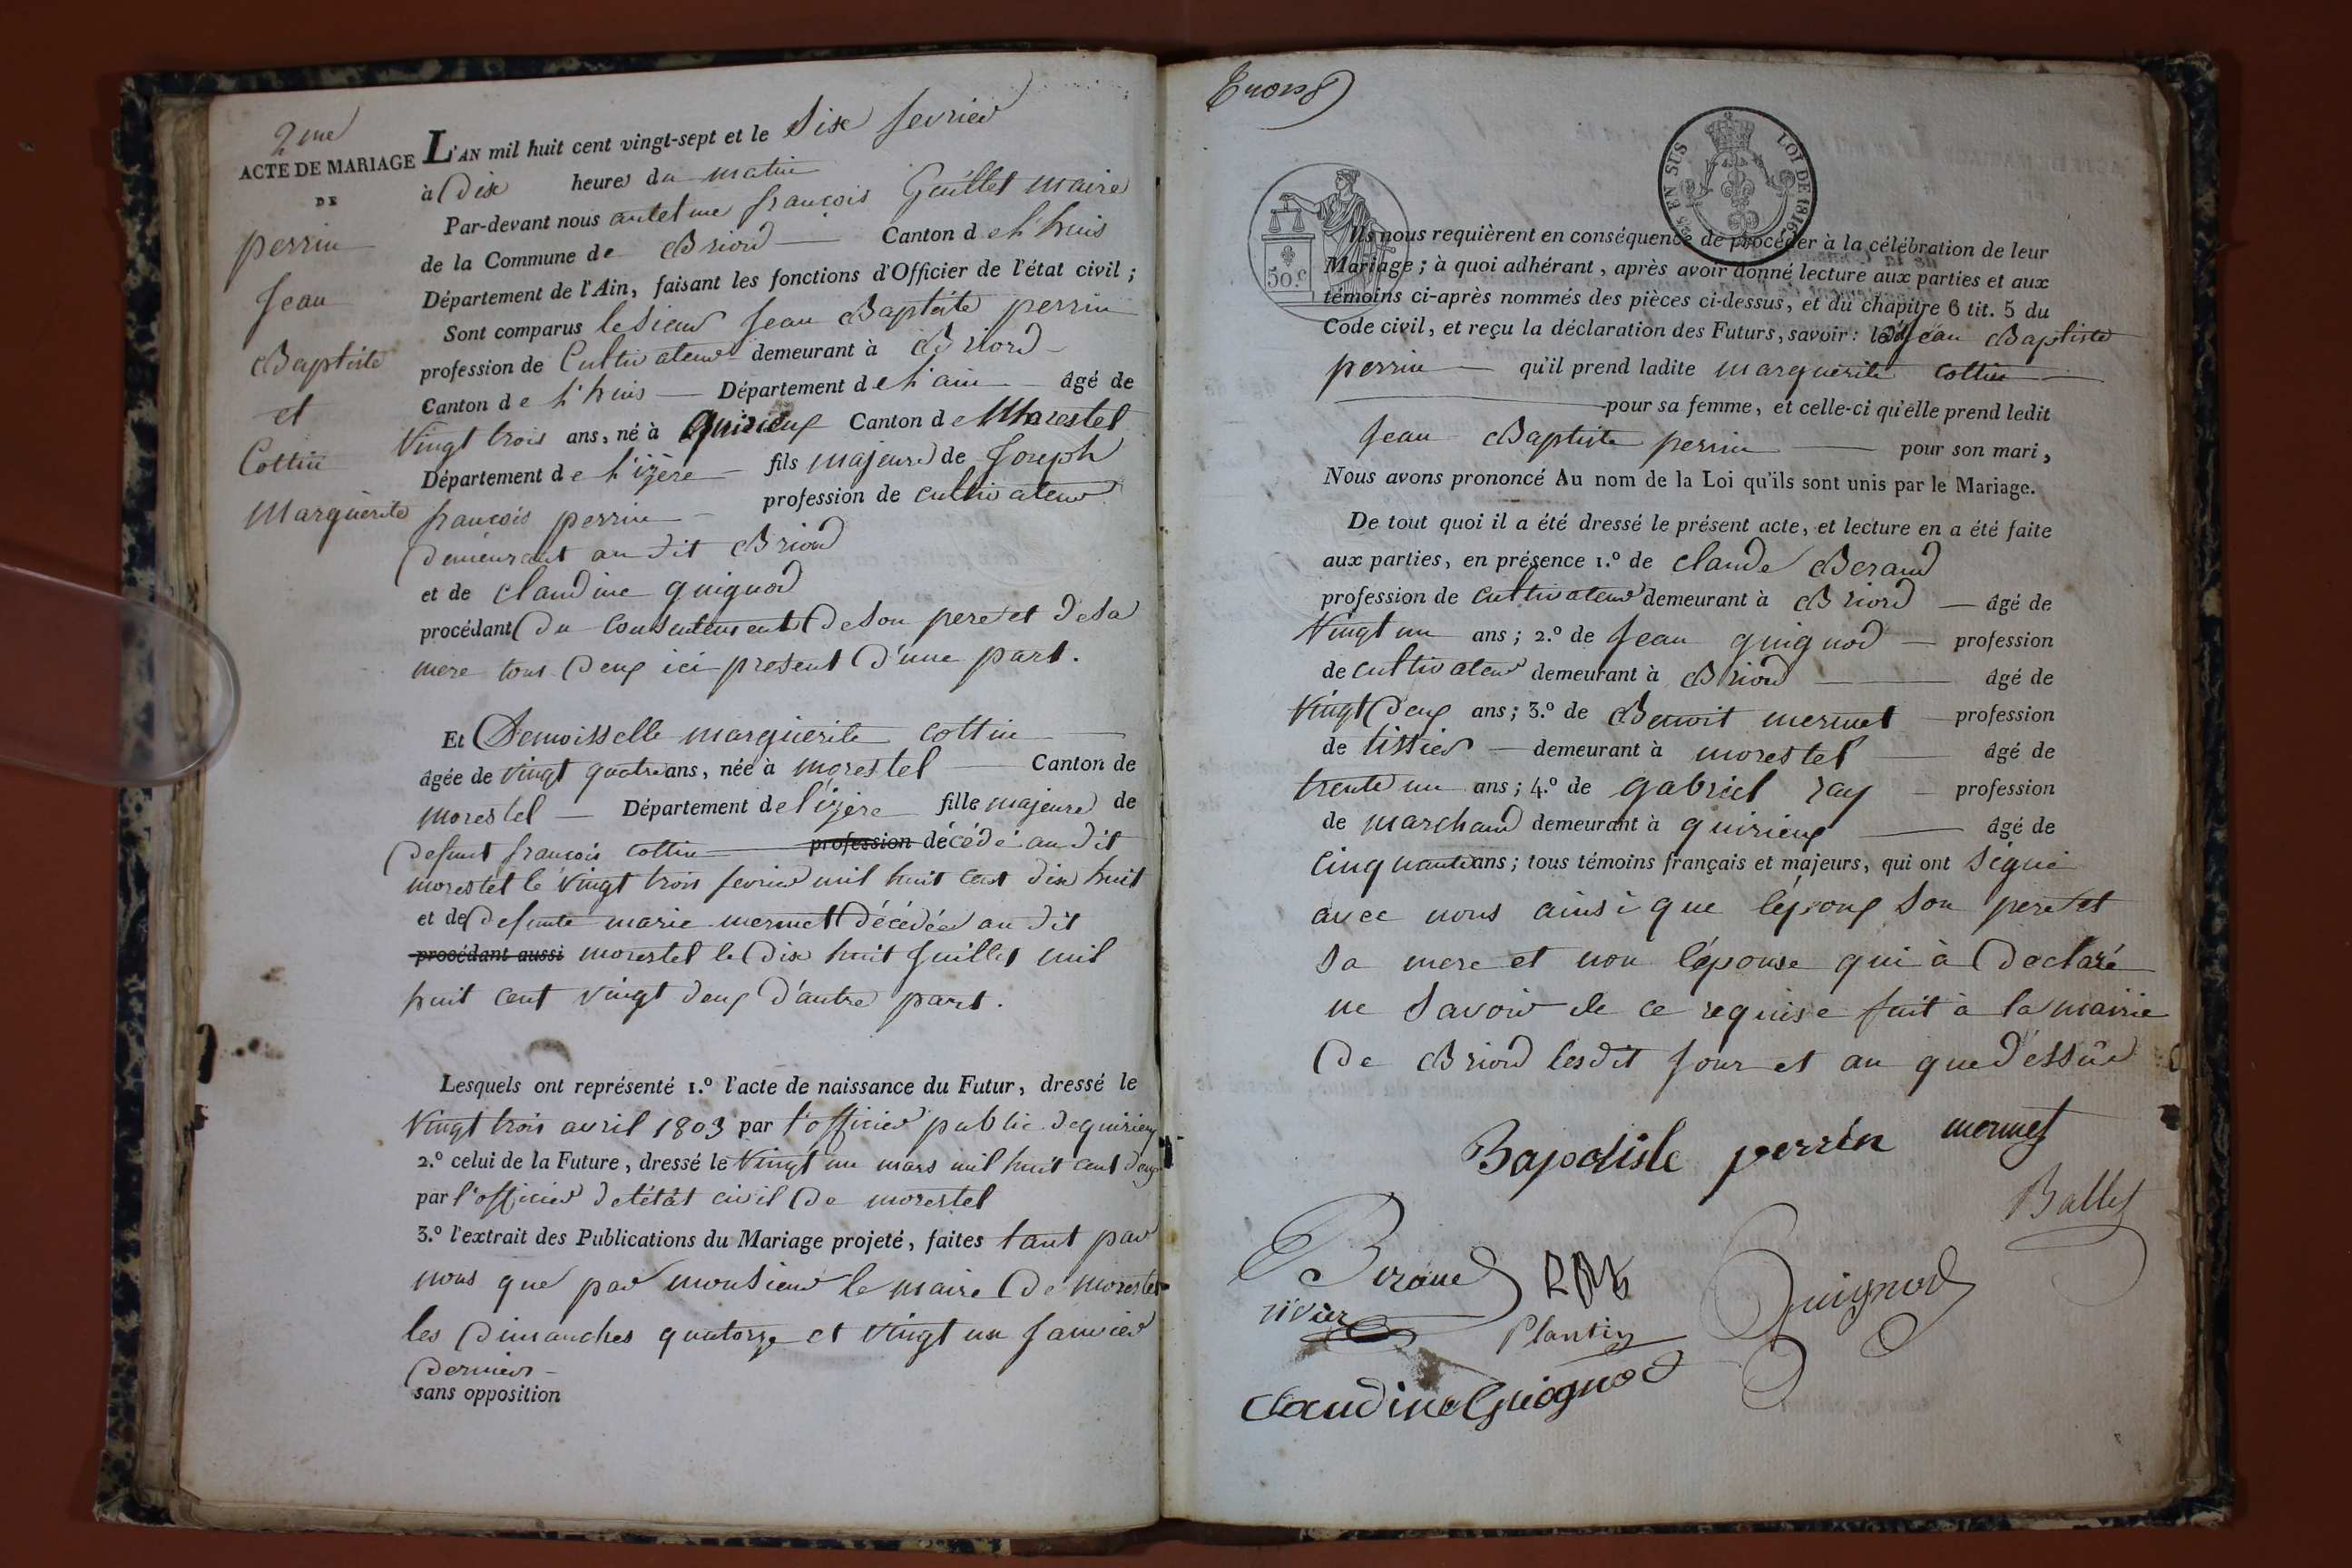 2me
ACTE DE MARIAGE
DE
perrin
Jean
Baptiste
et
Cottin
Marguerite
L'AN mil huit cent vingt-sept et le Six fevrier
à Dix heures du matin
Par-devant nous antelme françois Guillet maire
de la Commune de Briord Canton de l'huis
Département de l'Ain, faisant les fonctions d'Officier de l'état civil ;
Sont comparus le Sieur Jean Baptiste perrin
profession de Cultivateur demeurant à Briord
Canton de l'huis Département de l'ain âgé de
Vingt trois ans, né à quirieux Canton de Morestel
Département de l'izère fils majeure de Joseph
françois perrin profession de cultivateur
Demeurant au dit Briord
et de claudine guignod
procédant Du Consentement De Son pere et de Sa
mere tous Deux ici present D'une part.
Et Demoisselle marguerite cottin
âgée de vingt quatre ans, née à morestel Canton de
morestel Département de l'izère fille majeure de
Defunt françois cottin profession décédé au dit
morestel le vingt trois fevrier mil huit cent dix huit
et de Defunte marie mermet Décédée au dit
procédant aussi morestel le Dix huit Juillet mil
huit cent vingt deux D'autre part.
Lesquels ont représenté 1.º l'acte de naissance du Futur, dressé le
Vingt trois avril 1803 par l'officier public de quirieux
2.º celui de la Future, dressé le Vingt un mars mil huit cent deux
par l'officier de l'état civil De morestel
3.º l'extrait des Publications du Mariage projeté, faites tant par
nous que par monsieur le maire De morestel
les Dimanches quatorze et vingt un Janvier
Dernier
sans opposition
LOI DE 1816
EN SUS
50.c
Ils nous requièrent en conséquence de procéder à la célébration de leur
Mariage ; à quoi adhérant, après avoir donné lecture aux parties et aux
témoins ci-après nommés des pièces ci-dessus, et du chapitre 6 tit. 5 du
Code civil, et reçu la déclaration des Futurs, savoir : ledit Jean Baptiste
perrin qu'il prend ladite marguerite cottin
pour sa femme, et celle-ci qu'elle prend ledit
Jean Baptiste perrin pour son mari,
Nous avons prononcé Au nom de la Loi qu'ils sont unis par le Mariage.
De tout quoi il a été dressé le présent acte, et lecture en a été faite
aux parties, en présence 1.º de claude Beraud
profession de cultivateur demeurant à Briord âgé de
Vingt un ans ; 2.º de Jean guignod profession
de cultivateur demeurant à Briord âgé de
Vingt Deux ans ; 3.º de Benoit mermet profession
de tissier demeurant à morestel âgé de
trente un ans ; 4.º de gabriel ray profession
de marchand demeurant à quirieux âgé de
Cinquante ans ; tous témoins français et majeurs, qui ont signé
avec nous ainsi que l'époux Son pere et
Sa mere et non l'épouse qui à Déclaré
ne Savoir de ce requise fait à la mairie
De Briord les dit Jour et an que dessûs
Bapotiste perrin mermet
Ballet
Beraud RAY Guignod
rivier
Plantin
claudine Guiognod